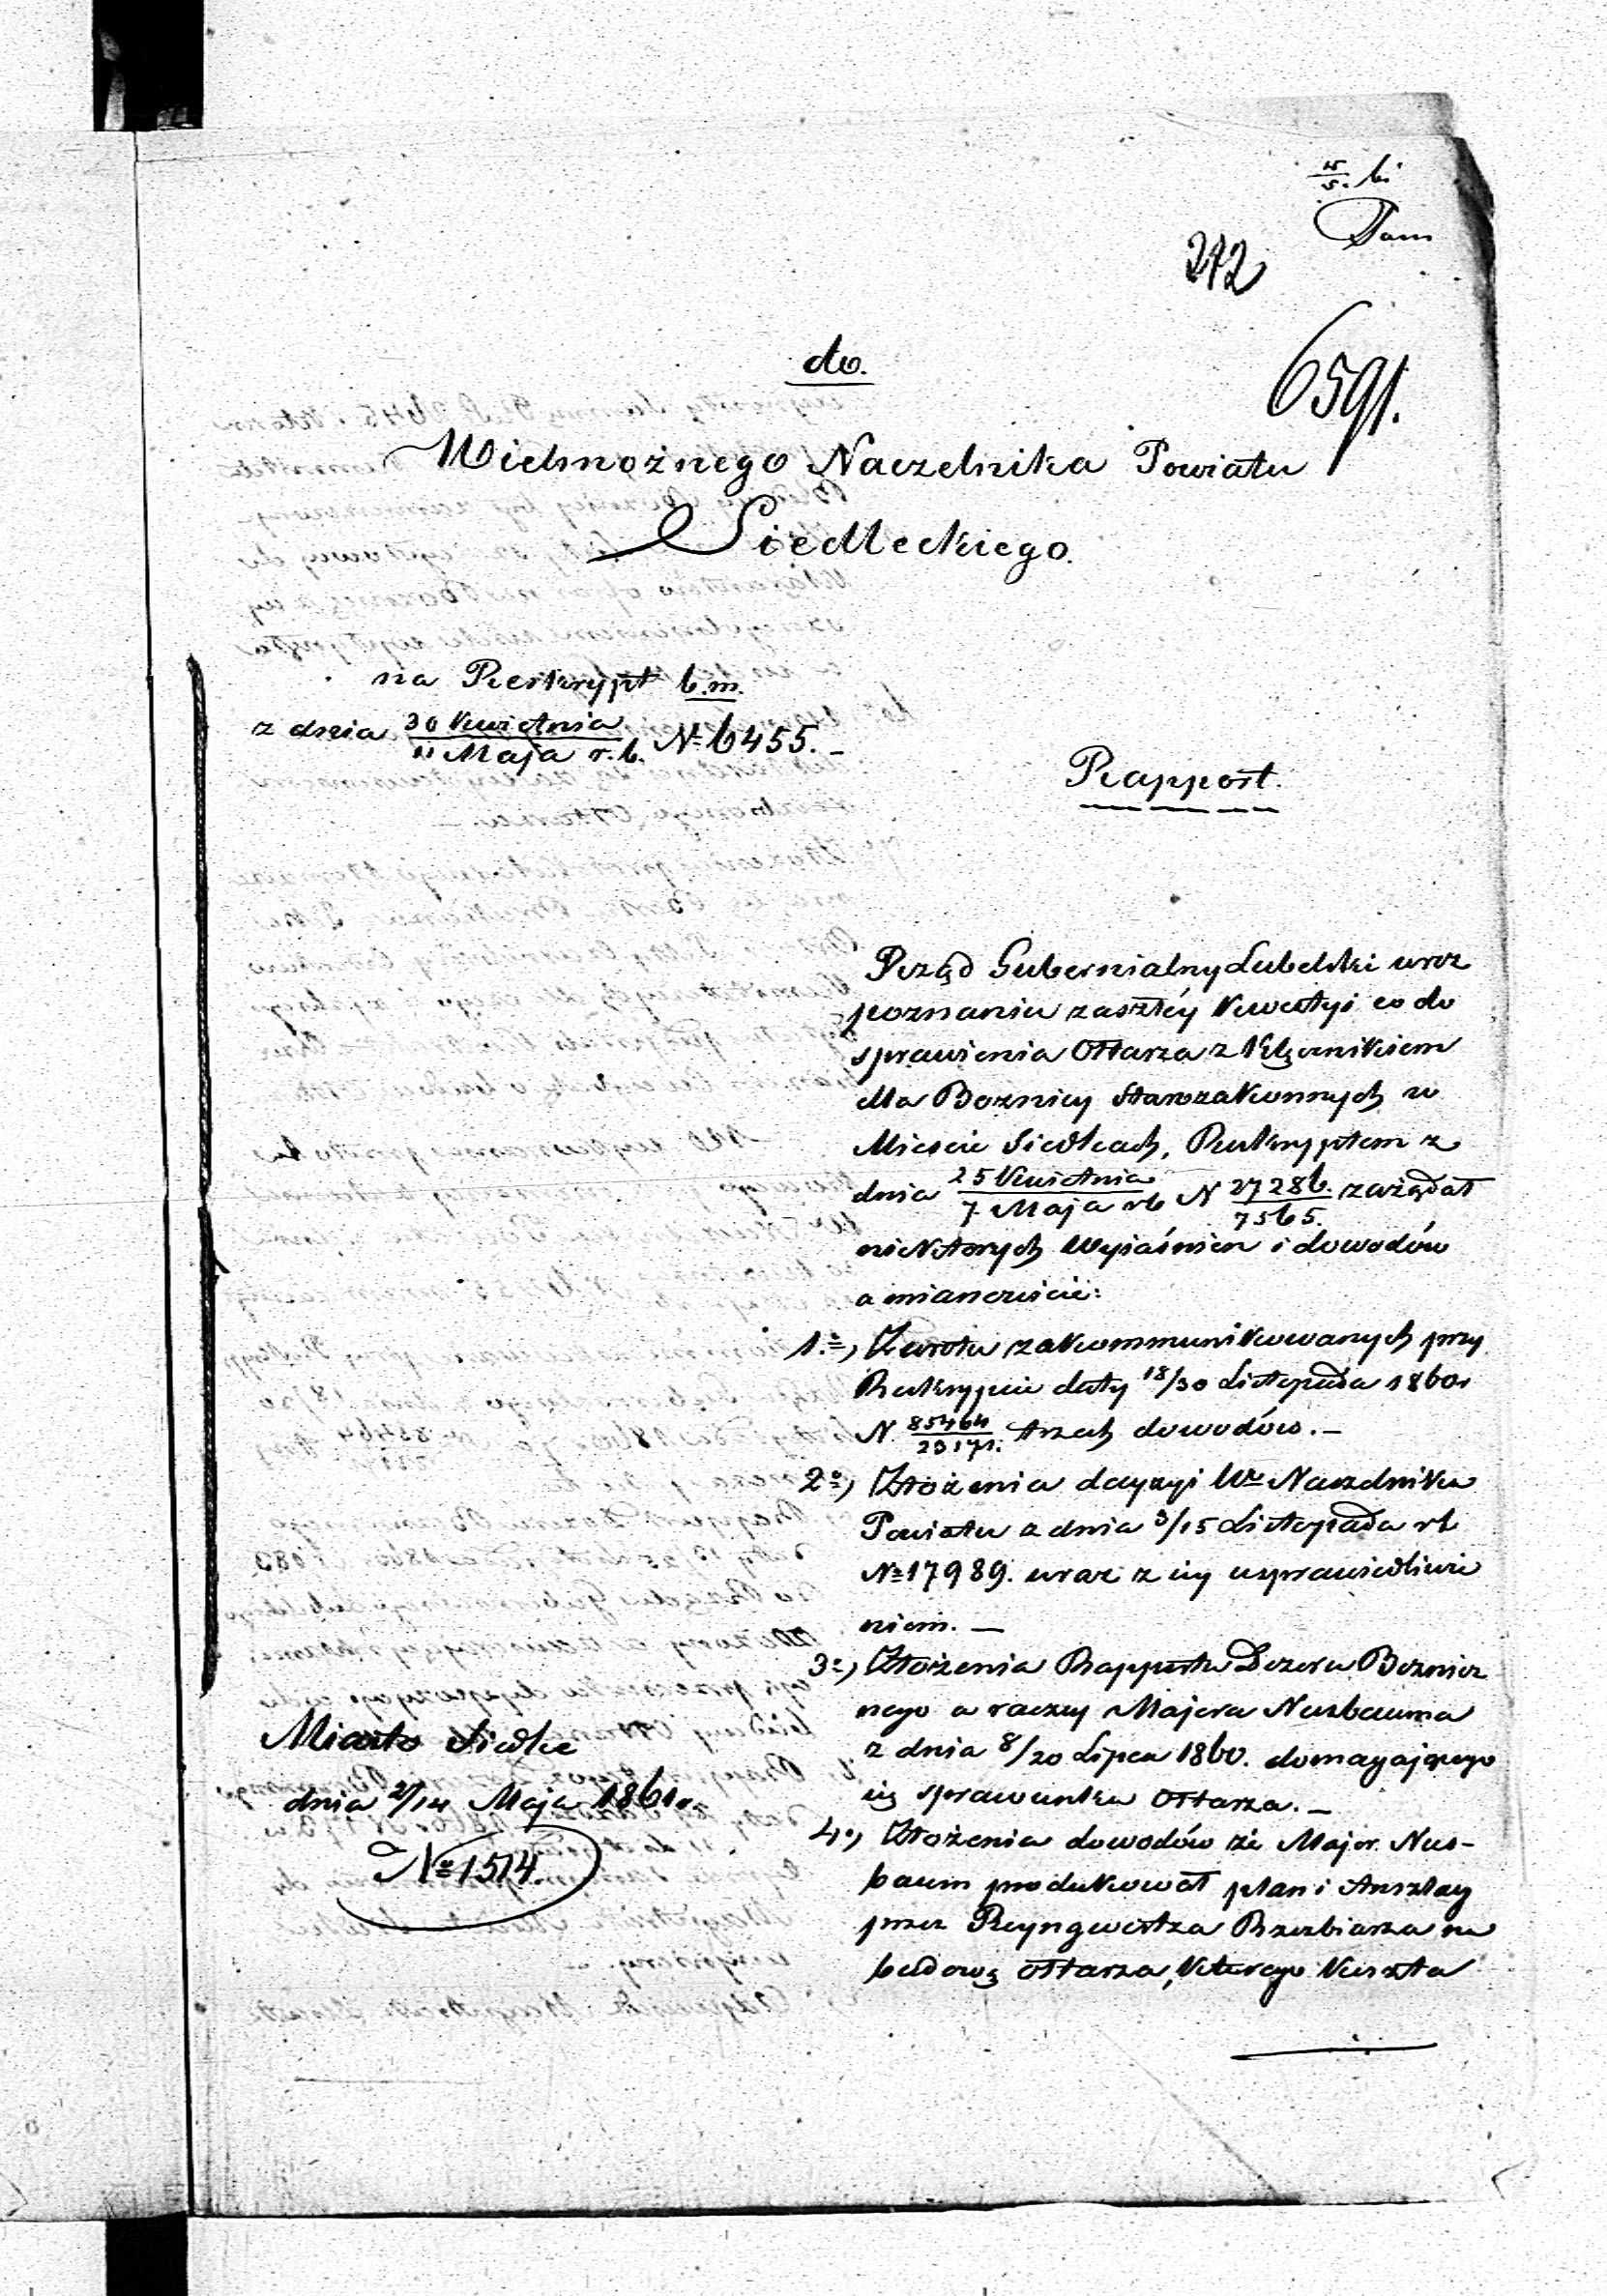 272
6591.
do.
Wielmożnego Naczelnika Powiatu
Siedleckiego.
na Reskrypt b.m.
z dnia 30 Kwietnia / 11 Maja r.b. № 6455.–
Rapport.
Rząd Gubernialny Lubelski wroz
poznaniu zaszłéy Kwestyi co do
sprawienia Ołtarza z Klęcznikiem
dla Boznicy Starozakonnych w
Mieście Siedlcach, Reskryptem z
dnia 25 Kwietnia / 7 Maja rb N 27286. / 7565. zażądał
niektórych Wyiaśnień i dowodów
a mianowicie:
1.º, Zwrotu zakommunikowanych przy
Reskrypcie daty 18/30 Listopada 1860r
N 85464 / 23171. trzech dowodów.–
2º, Złożenia decyzyi Wº Naczelnika
Powiatu z dnia 3/15 Listopada rb
№ 17989. wraz z iey usprawiedliwie
niem. —
3º, Złożenia Rapportu Dozoru Boznicz
nego a raczey Majera Nusbauma
z dnia 8/20 Lipca 1860. domagającego
się sprawunku Ołtarza.–
4º, Złożenia dowodów że Major Nus-
baum produkował plan i Anszlag
przez Reyngwertza Rzezbiarza na
budowę ołtarza, którego Kuszta
Miasto Siedlce
dnia 2/14 Maja 1861r.
№ 1514.